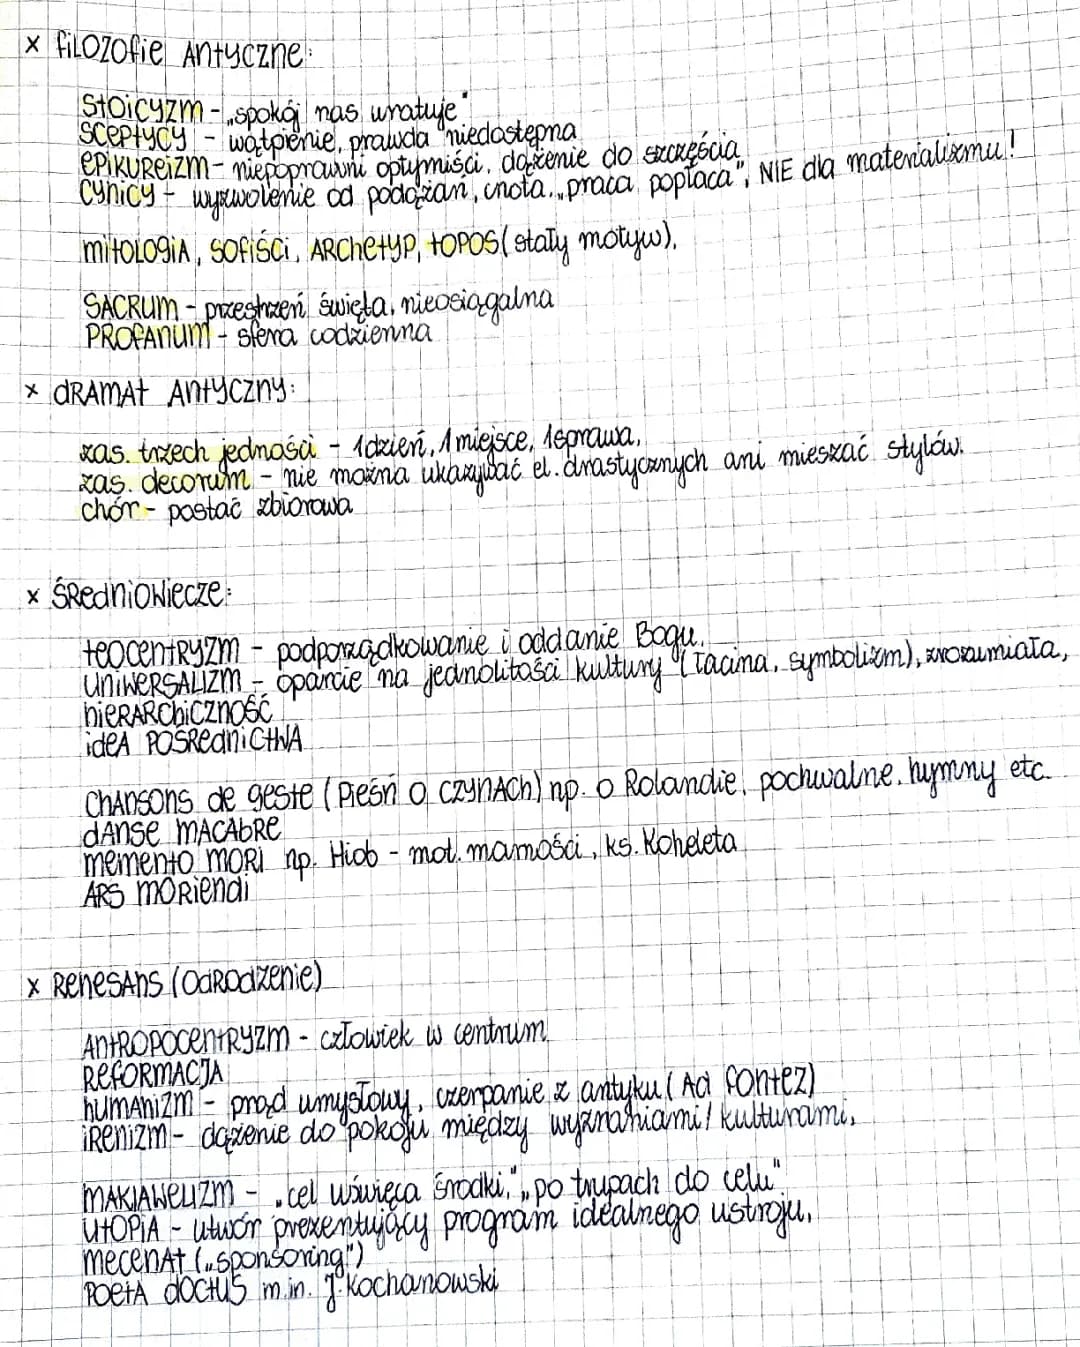 x FiLOZOfie ANtyczne:
Stoicyzm - „spokój nas uratuje"
Sceptycy - wątpienie, prawda niedostępna
epikureizm - niepoprawni optymiści, dążenie do szczęścia
Cynicy - wyzwolenie od pożądań, cnota, „praca popłaca", NIE dla materializmu!
mitologia, sofiści, archetyp, topos (stały motyw),
SACRUM - przestrzeń święta, nieosiągalna
PROFANUM - sfera codzienna
x dramat antyczny:
zas. trzech jedności - 1 dzień, 1 miejsce, 1 sprawa,
zas. decorum - nie można ukazywać el. drastycznych ani mieszać stylów.
chór - postać zbiorowa
x Średniowiecze:
teocentryzm - podporządkowanie i oddanie Bogu,
uniwersalizm - oparcie na jednolitości kultury (łacina, symbolizm), zrozumiała,
hierarchiczność
idea pośrednictwa
chansons de geste (Pieśń o czynach) np. o Rolandie, pochwalne, hymny etc.
danse macabre
memento mori np. Hiob - mot. marności, ks. Koheleta
ars moriendi
x Renesans (Odrodzenie)
antropocentryzm - człowiek w centrum,
Reformacja
humanizm - prąd umysłowy, czerpanie z antyku (Ad fontez)
irenizm - dążenie do pokoju między wyznaniami/kulturami,
makiawelizm - „cel uświęca środki," „po trupach do celu"
utopia - utwór prezentujący program idealnego ustroju,
mecenat („sponsoring")
Poeta doctus m.in. J. Kochanowski